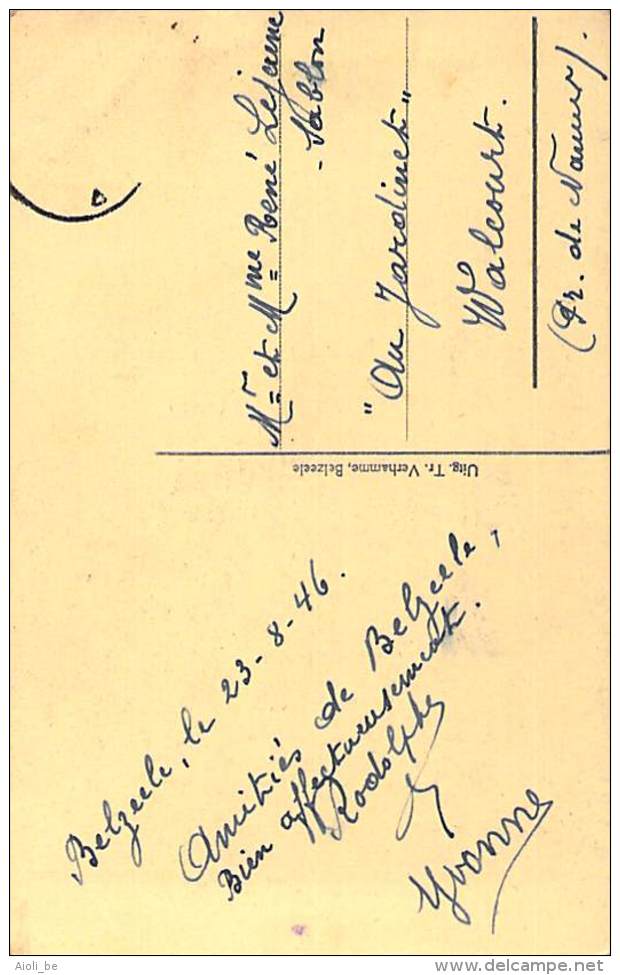 Belzeele, le 23-8-46.
Amitiés de Belzeele,
Bien affectueusement.
Rodolphe
Yvonne
Uitg. Tr. Verhamme, Belzeele
Mr et Mme René Lejeune
-Sablon
"Au Jardinet"
Walcourt.
(Pr. de Namur).
Aioli_be
http://www.delcampe.net